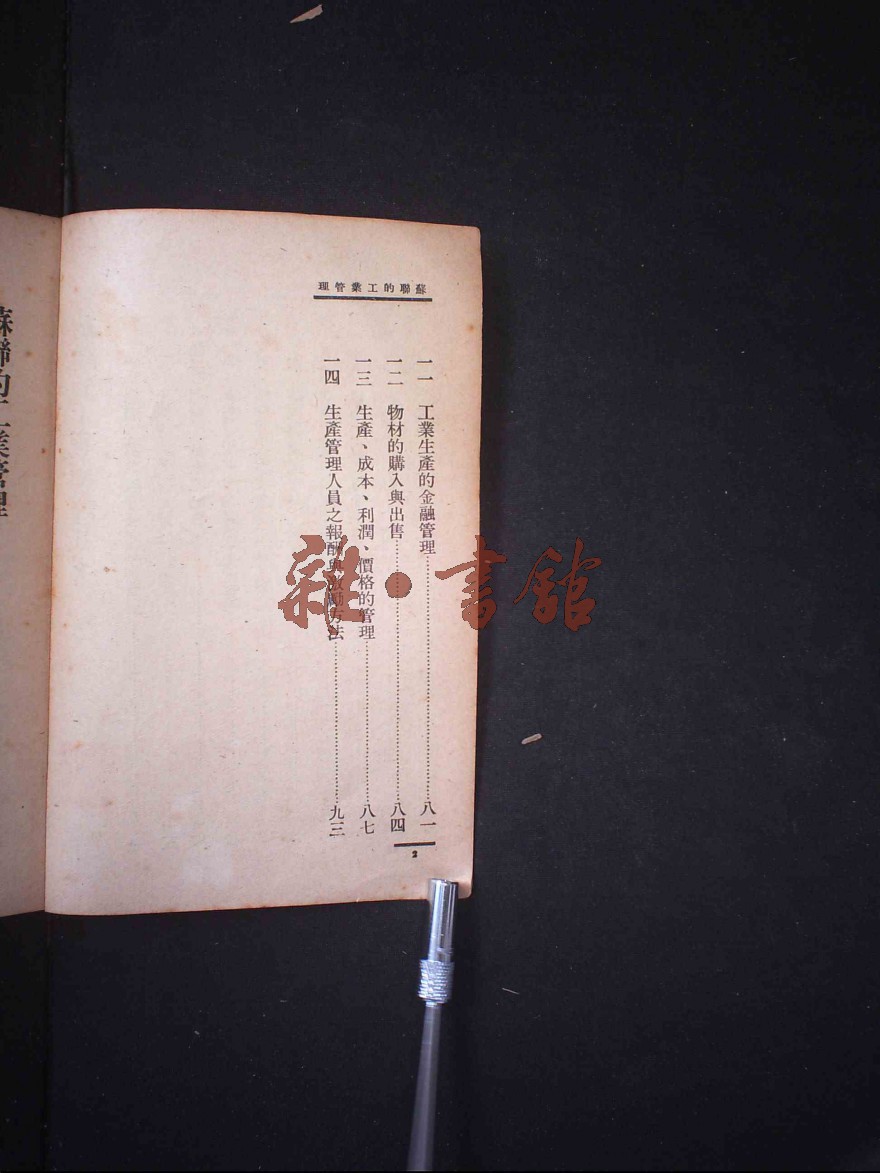 蘇聯的工業管理
一一　工業生產的金融管理……八一
一二　物材的購入與出售……八四
一三　生產、成本、利潤、價格的管理……八七
一四　生產管理人員之報酬與獎勵方法……九三
2
蘇聯的工業管理
雜·書館